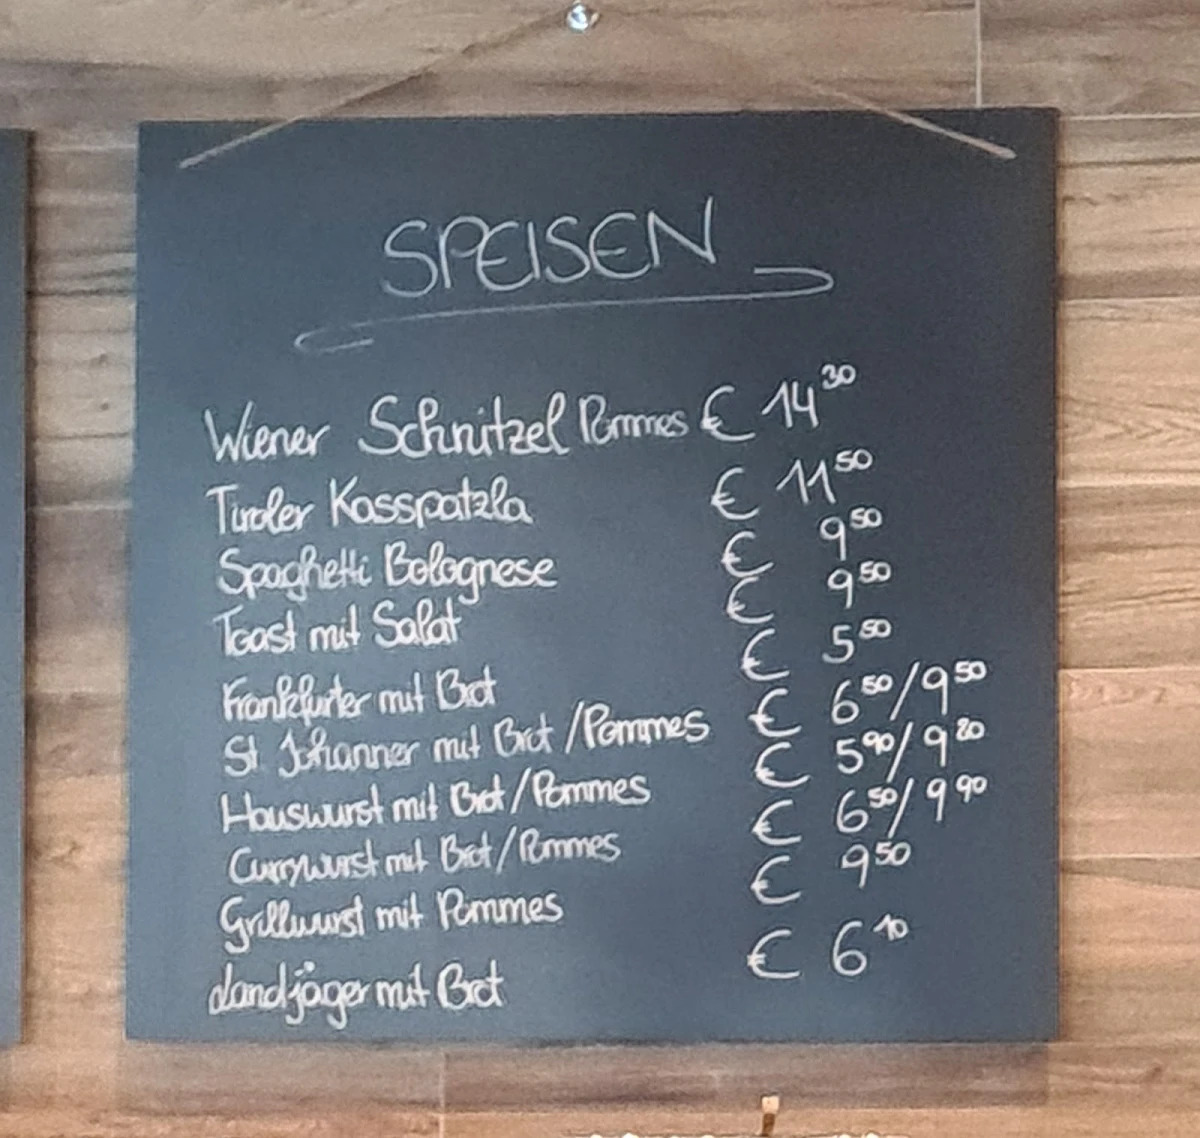 SPEISEN
Wiener Schnitzel Pommes € 14 30
Tiroler Kasspatzla € 11 50
Spaghetti Bolognese € 9 50
Toast mit Salat € 9 50
Frankfurter mit Brot € 5 50
St Johanner mit Brot / Pommes € 6 50 / 9 50
Hauswurst mit Brot / Pommes € 5 90 / 9 20
Currywurst mit Brot / Pommes € 6 50 / 9 90
Grillwurst mit Pommes € 9 50
Landjäger mit Brot € 6 10